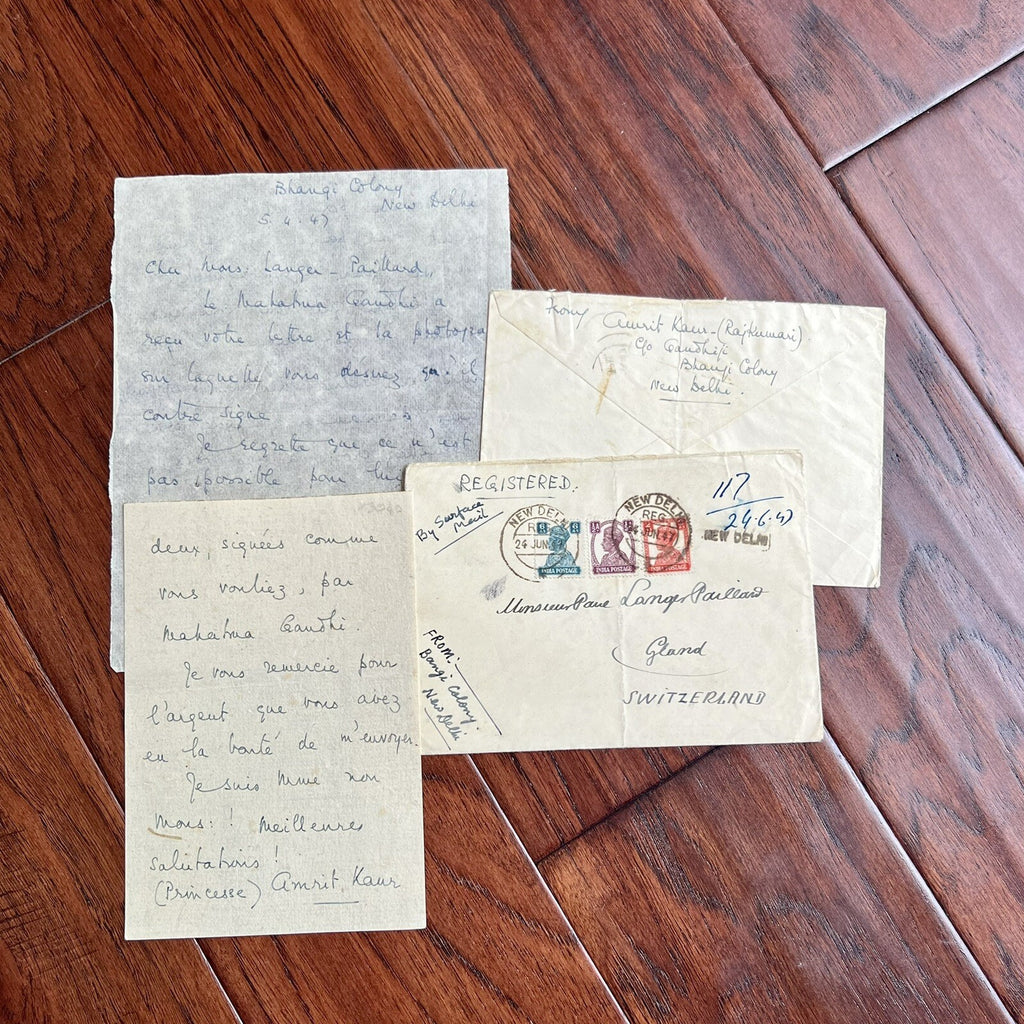 Bhangi Colony
New Delhi
5.4.47
Cher Mons: Langer-Paillard,
Le Mahatma Gandhi a
reçu votre lettre et la photogra
sur laquelle vous desirez qu'il
contre signe
Je regrette que ce n'est
pas possible pour lui
deux, signées comme
vous vouliez, par
Mahatma Gandhi.
Je vous remercie pour
l'argent que vous avez
eu la bonté de m'envoyer.
Je suis Mme non
Mons: ! Meilleures
salutations!
(Princesse) Amrit Kaur
From Amrit Kaur-(Rajkumari).
c/o Gandhiji
Bhangi Colony
New Delhi.
REGISTERED.
By Surface
Mail
NEW DELHI
REG
24 JUN.47
INDIA POSTAGE
INDIA POSTAGE
INDIA POSTAGE
NEW DELHI
REG
24 JUN.47
117
24.6.47
NEW DELHI
Monsieur Paul Langer Paillard
Gland
SWITZERLAND
FROM:
Bangi Colony.
New Delhi